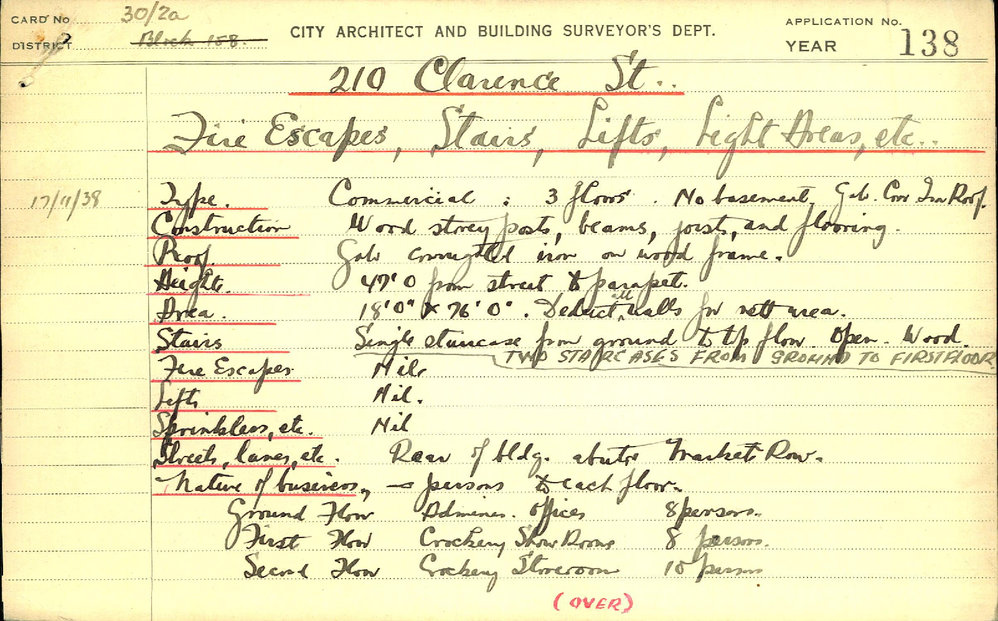 CARD No 30/2a
DISTRICT Block 158.
CITY ARCHITECT AND BUILDING SURVEYOR'S DEPT.
APPLICATION No.
YEAR 138
210 Clarence St..
Fire Escapes, Stairs, Lifts, Light Areas, etc..
17/11/38 Type. Commercial : 3 floors. No basement, Galv. Corr Iron Roof.
Construction Wood storey posts, beams, joist, and flooring.
Roof. Galv corrugated iron on wood frame.
Height. 47'0 from street to parapet.
Area. 18'0" x 76'0". Deduct all walls for nett area.
Stairs Single staircase from ground to top floor. Open. Wood.
TWO STAIRCASES FROM GROUND TO FIRST FLOOR.
Fire Escapes Nil.
Lifts Nil.
Sprinklers, etc. Nil
Streets, lanes, etc. Rear of bldg. abuts Market Row.
Nature of business, – persons to each floor.
Ground Floor Admin. offices 8 persons.
First Floor Crockery Show Rooms 8 persons.
Second Floor Crockery Storeroom 10 persons
(OVER)